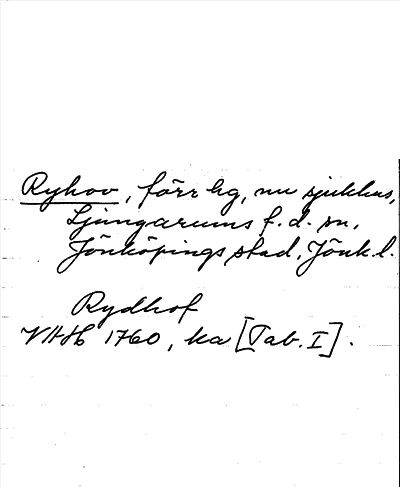 Ryhov, förr hg, nu sjukhus,
Ljungarums f. d. sn,
Jönköpings stad, Jönk. l.
Rydhof
VHH 1760, ka [Tab. I].